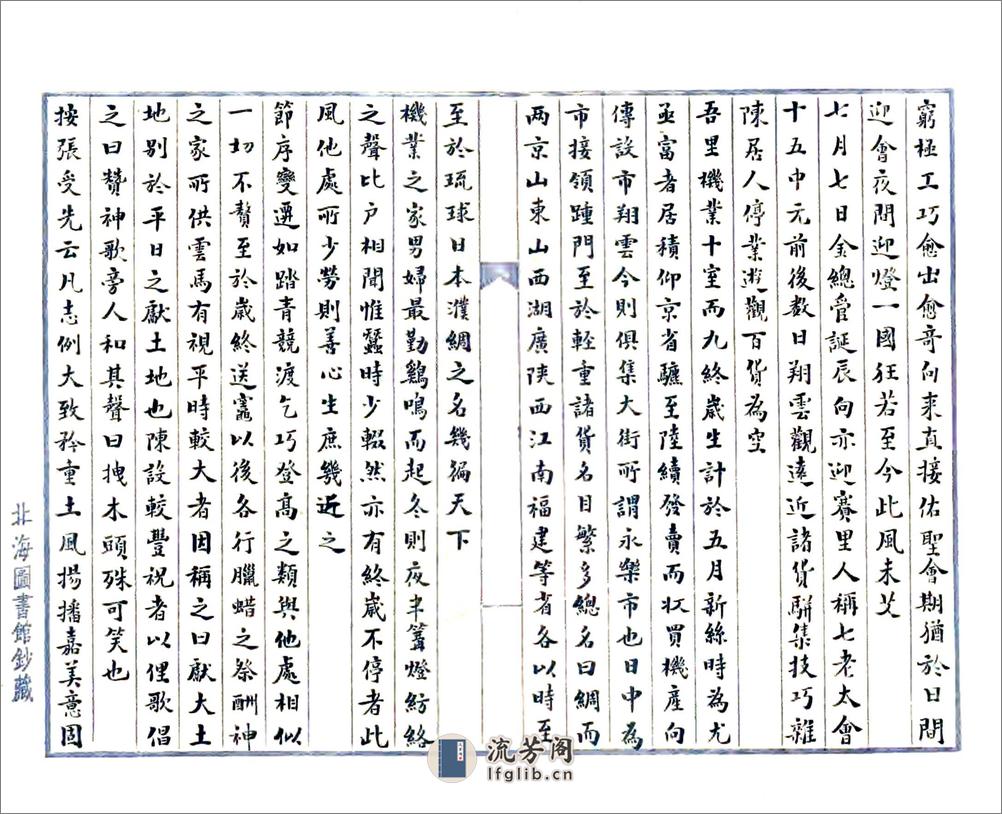 窮極工巧愈出愈奇向来直接佑聖會期猶於日間
迎會夜間迎燈一國狂若至今此風未艾
七月七日金總管誕辰向亦迎賽里人稱七老太會
十五中元前後数日翔雲觀遠近諸貨駢集技巧雜
陳居人停業遊觀百貨為空
吾里機業十室而九終歲生計於五月新絲時為尤
亟富者居積仰京省驢至陸續發賣而収買機產向
傳設市翔雲今則俱集大街所謂永樂市也日中為
市接領踵門至於輕重諸貨名目繁多總名曰綢而
两京山東山西湖廣陝西江南福建等省各以時至
至於琉球日本濮綢之名幾徧天下
機業之家男婦最勤鷄鳴而起冬則夜半篝燈紡絡
之聲比户相聞惟蠶時少輟然亦有終歲不停者此
風他處所少勞則善心生庶幾近之
節序變遷如踏青競渡乞巧登高之類與他處相似
一切不贅至於歲終送竈以後各行臘蜡之祭酬神
之家所供雲馬有視平時較大者因稱之曰獻大土
地别於平日之獻土地也陳設較豐祝者以俚歌倡
之曰贊神歌旁人和其聲曰拽木頭殊可笑也
按張受先云凡志例大致矜重土風揚播嘉美意固
北海圖書館鈔藏
流芳阁
lfglib.cn